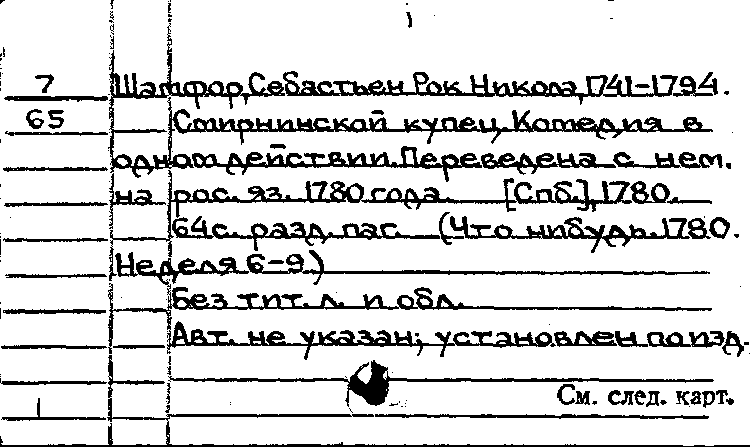 7 Шамфор, Себастьен Рок Никола, 1741-1794.
65 Смирнинской купец. Комедия в
одном действии. Переведена с нем.
на рос. яз. 1780 года. [Спб.], 1780.
64с. разд. паг. (Что нибудь. 1780.
Неделя 6-9.)
Без тит. л. и обл.
Авт. не указан; установлен по изд.
См. след. карт.